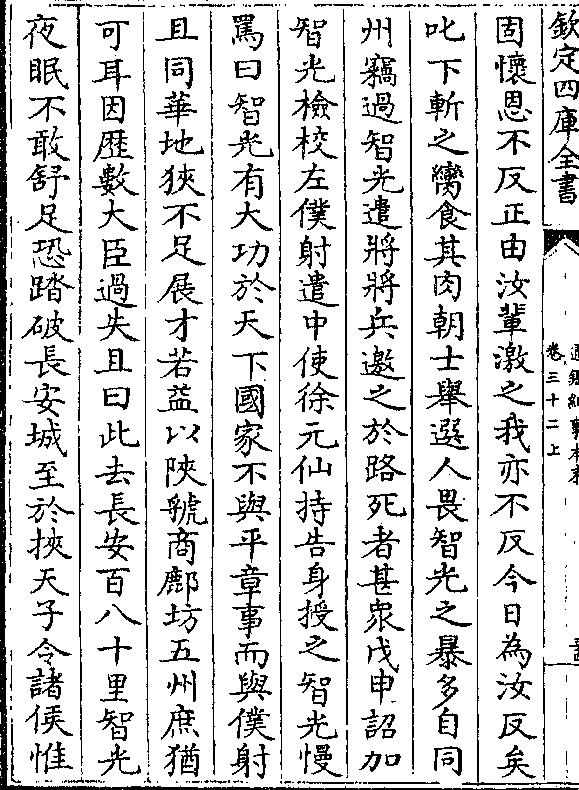 欽定四庫全書
卷三十二上
固懷恩不反正由汝輩激之我亦不反今日為汝反矣
叱下斬之臠食其肉朝士舉選人畏智光之暴多自同
州竊過智光遣將將兵邀之於路死者甚衆戊申詔加
智光檢校左僕射遣中使徐元仙持告身授之智光慢
罵曰智光有大功於天下國家不與平章事而與僕射
且同華地狹不足展才若益以陜虢商鄜坊五州庶猶
可耳因歴數大臣過失且曰此去長安百八十里智光
夜眠不敢舒足恐踏破長安城至於挾天子令諸侯惟